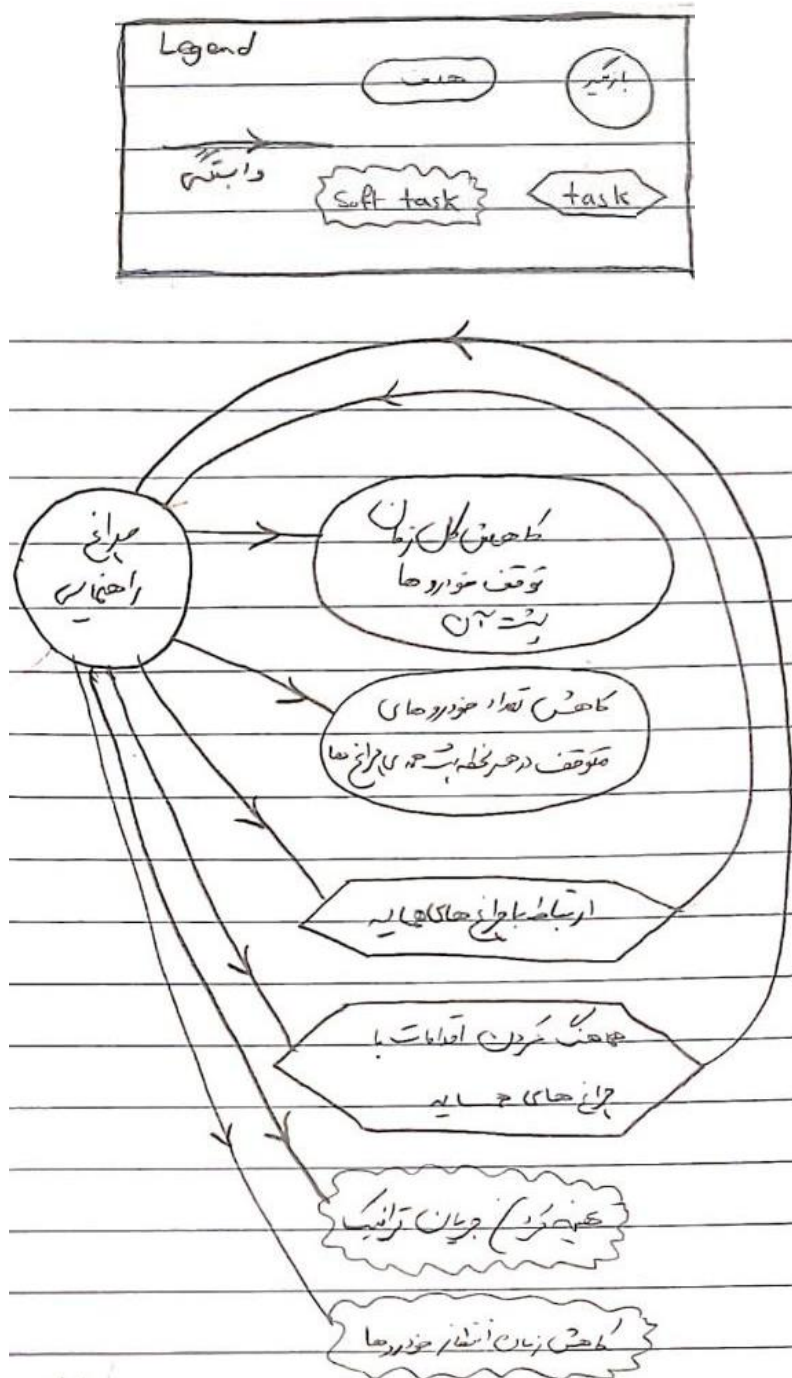 Legend
هدف
بازیگر
وابستگی
Soft task
task
چراغ
راهنمایی
کاهش کل زمان
توقف خودروها
پشت آن
کاهش تعداد خودروهای
متوقف در هر لحظه پشت همه ی چراغ ها
ارتباط با چراغ های همسایه
هماهنگ کردن اقدامات با
چراغ های همسایه
بهینه کردن جریان ترافیک
کاهش زمان انتظار خودروها